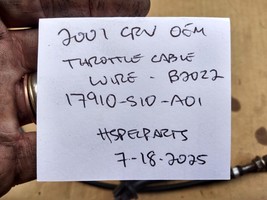 2001 CRV OEM
THROTTLE CABLE
WIRE - B2022
17910-S10-A01
HSPELPARTS
7-18-2025